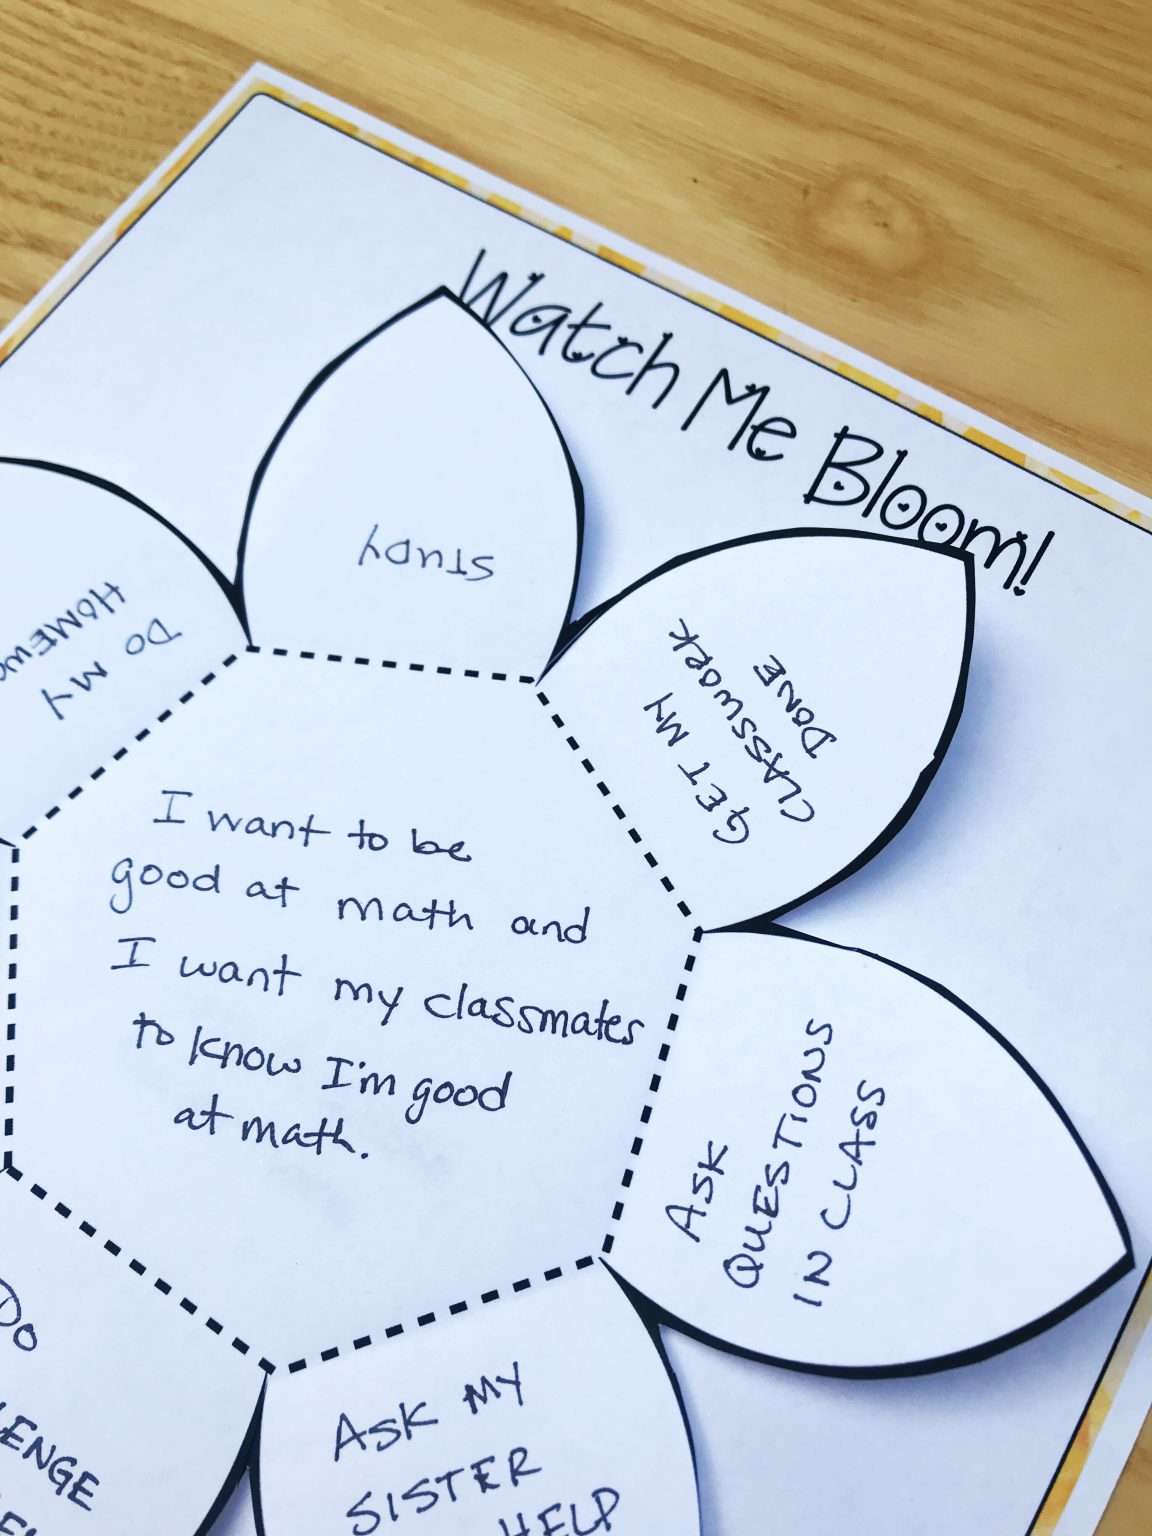 Watch Me Bloom!
STUDY
GET MY
CLASSWORK
DONE
DO MY
I want to be
good at math and
I want my classmates
to know I'm good
at math.
ASK
QUESTIONS
IN CLASS
ASK MY
SISTER
HELP
DO